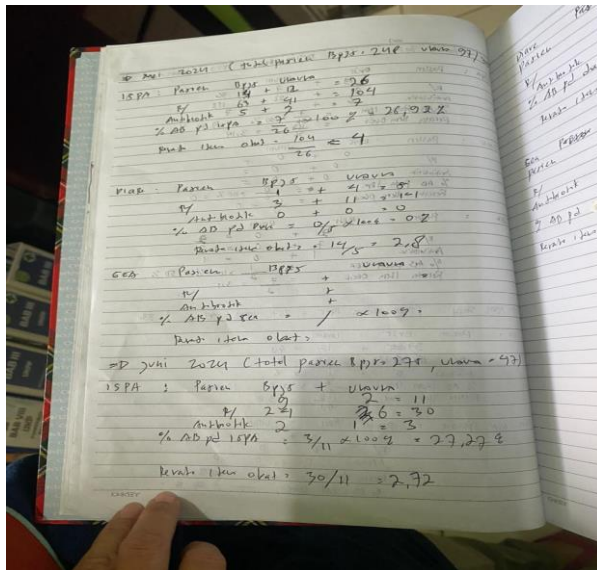 2024 (total pasien Bpjs = 248 umum 97)
ISPA : Pasien Bpjs umum = 26
R/ 63 + 41 = 104
Antibiotik 5 + 2 = 7
% AB pd ispa = 7/26 x 100 % = 26,92 %
Rerata item obat = 104/26 = 4
Diare : Pasien Bpjs umum
1 + 4 = 5
R/ 3 + 11 = 14
Antibiotik 0 + 0 = 0
% AB pd = 0/5 x 100 % = 0 %
Rerata item obat = 14/5 = 2,8
GEA Pasien Bpjs umum
R/ +
Antibiotik +
% AB pd Gea = / x 100 % =
Rerata item obat =
=D Juni 2024 (total pasien Bpjs = 275, umum = 47)
ISPA : Pasien Bpjs + umum
9 2 = 11
R/ 24 6 = 30
Antibiotik 2 1 = 3
% AB pd ISPA = 3/11 x 100 % = 27,27 %
Rerata item obat = 30/11 = 2,72
Diare
Pasien
R/
Antibiotik
% AB pd
Rerata item
Gea
Pasien
R/
Antibiotik
% AB pd
Rerata item
BAB III
BAB VIII